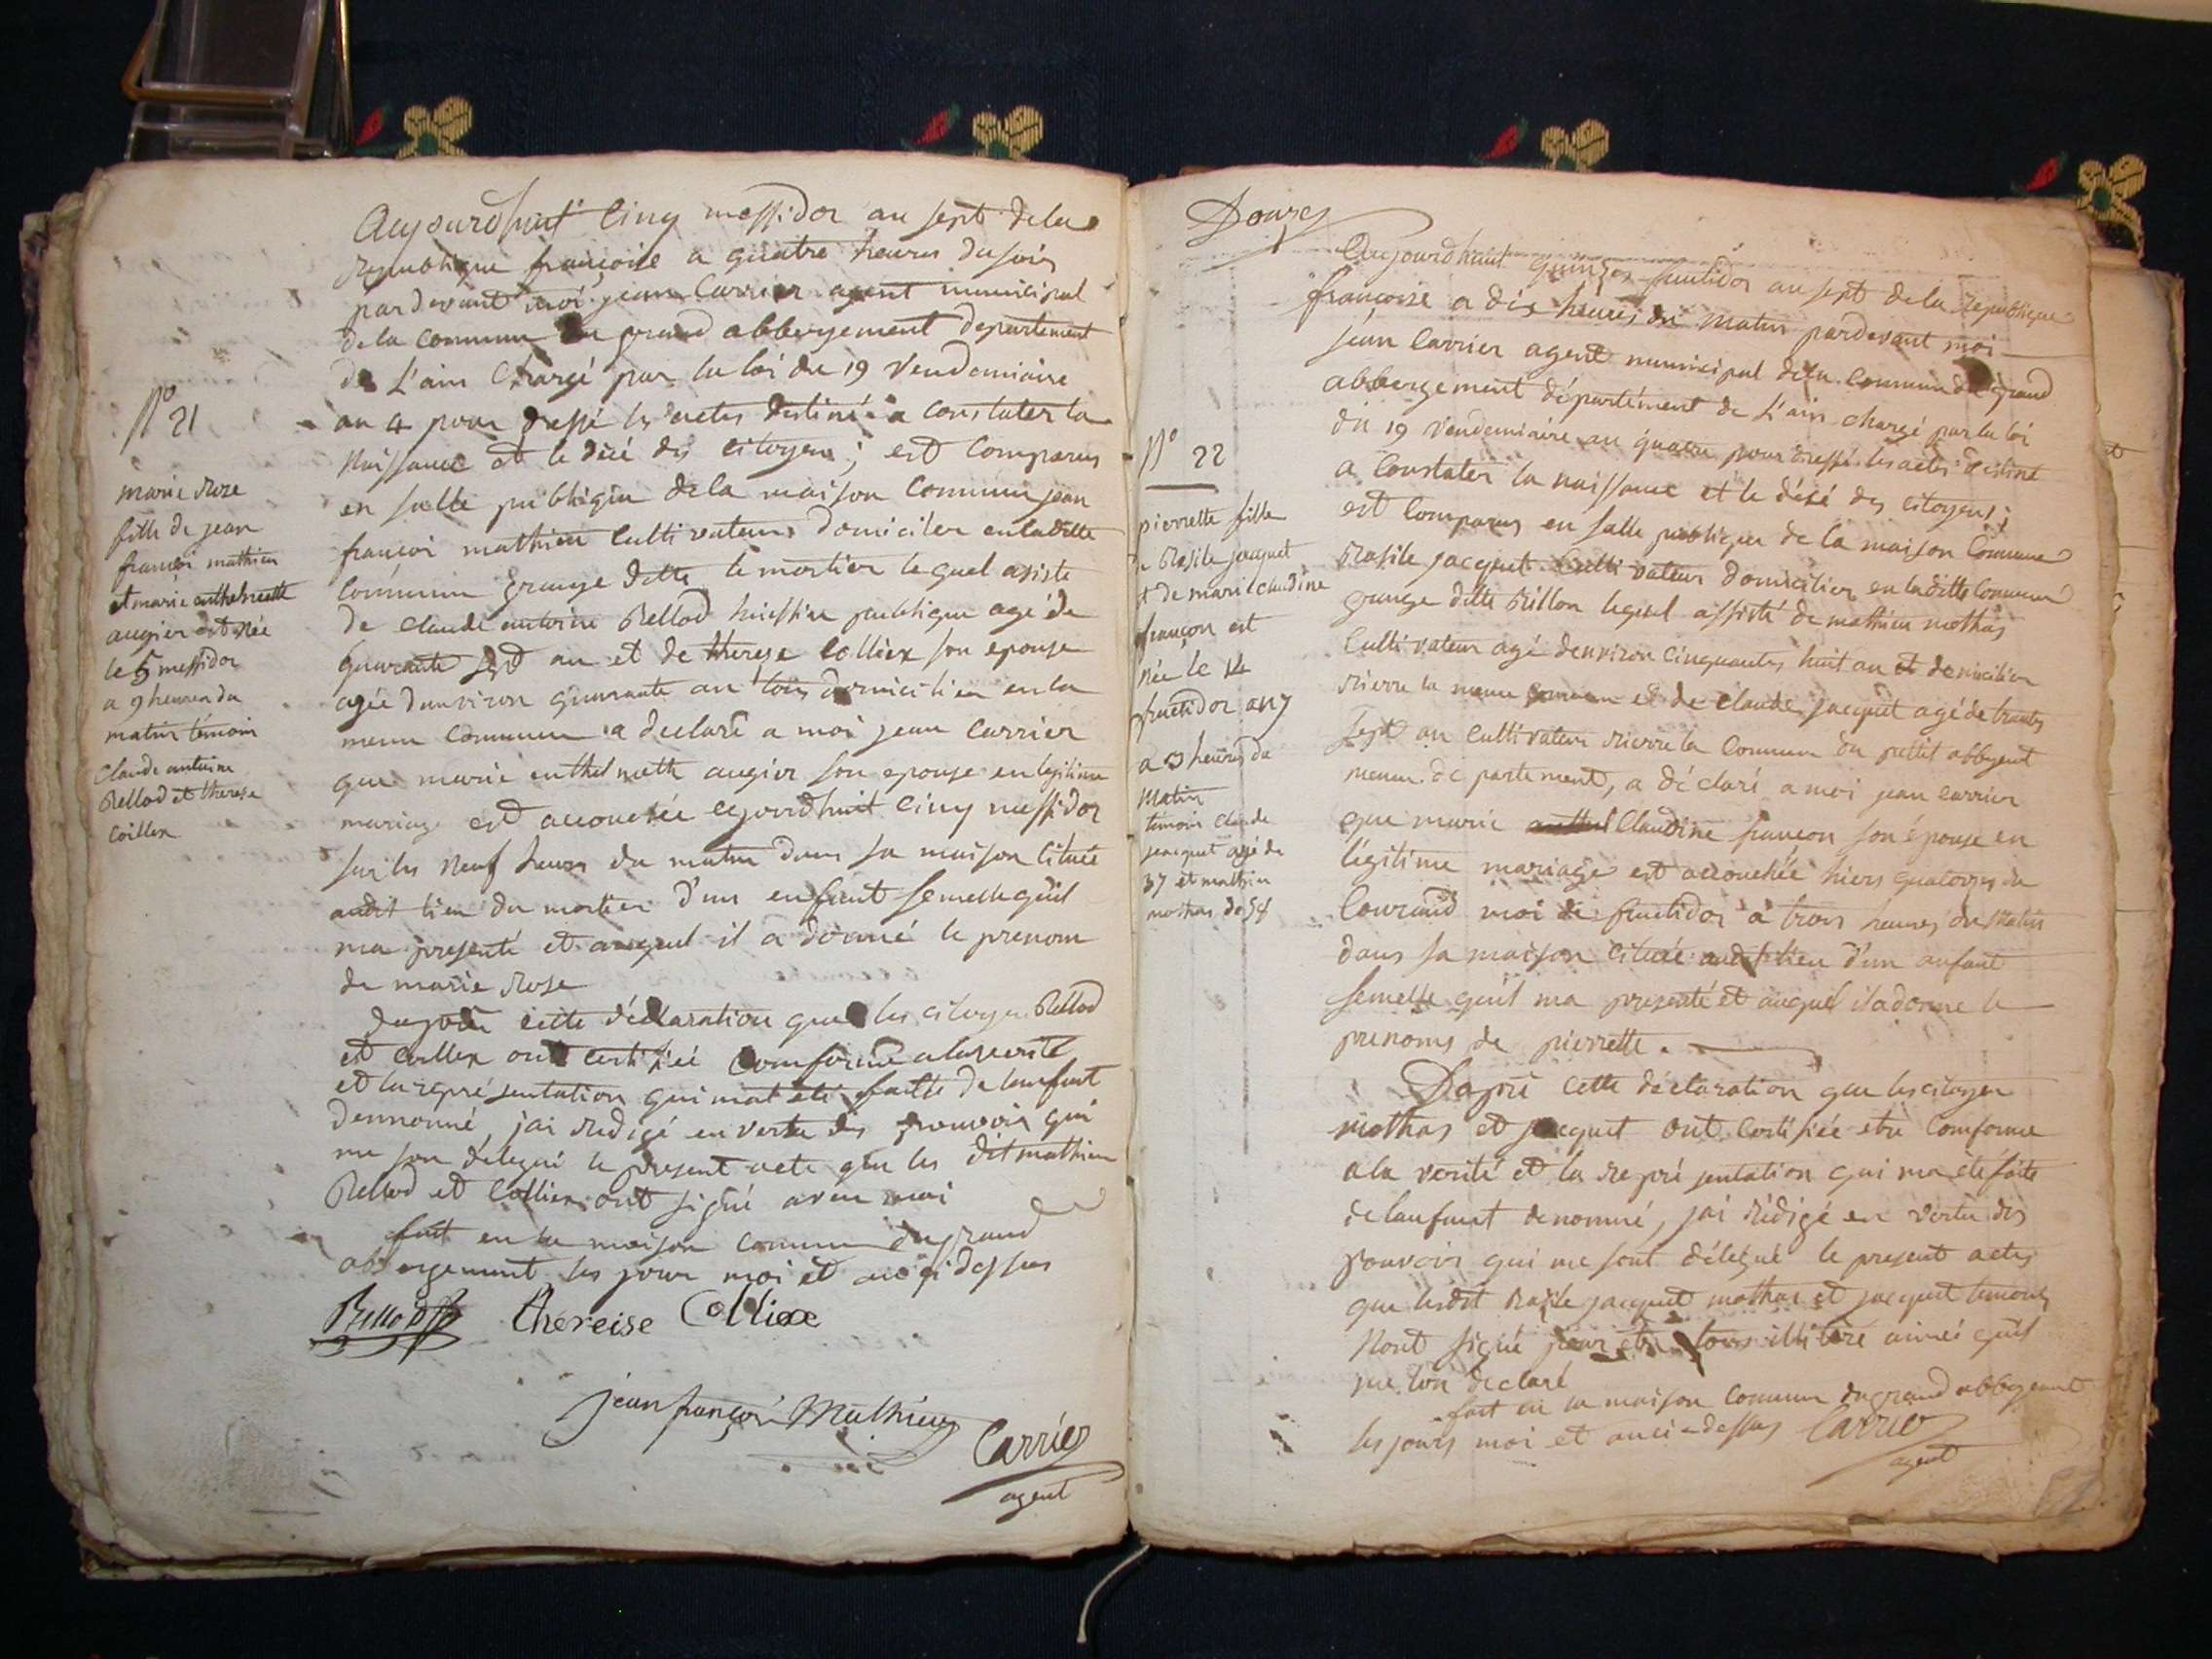 Aujourdhuit cinq messidor an sept de la
republique françoise a quatre heures du soir
pardevant moi jean Carrier agent municipal
de la commune du grand abbergement departement
de L'ain Chargé par la loi du 19 Vendemiaire
an 4 pour dressé les actes destiné a constater la
Naissance et le décé des citoyens ; est Comparus
en salle publique de la maison Commune jean
françoi mathieu cultivateur domicilier en laditte
Commune grange ditte le mortier lequel asisté
de claude antoine Rellod huissier publique agé de
quarante sept an et de therese collier son epouse
agée d'environ quarante an tous domicilier en la
meme Commune a declaré a moi jean Carrier
que marie enthelmette augier son epouse en legitime
mariage est accouchée aujourdhuit cinq messidor
sur les neuf heures du matin dans sa maison cituée
audit lieu du mortier d'un enfant femelle quil
ma presenté et auquel il a donné le prenom
de marie Rose
Daprés cette déclaration que les citoyen Rellod
et collex ont certifiée Comforme a la verité
et la representation qui mat été faitte de lenfant
denommé, jai redigé en vertu des pouvoir qui
me son délégué le present acte que les dit mathieu
Rellod et Collier ont signé avec moi
fait en la maison commune du grand
abbergement les jour moi et an ci dessus
Rellod
thereise Colliex
jean françoi Mathieu
Carrier
agent
N° 21
marie Rose
fille de jean
françoi mathieu
et marie enthelmette
augier est Née
le 5 messidor
a 9 heures du
matin témoin
Claude antoine
Rellod et therese
Coillex
Douze
Aujourdhuit quinze fructidor an sept de la republique
françoise a dix heures du matin pardevant moi
jean Carrier agent municipal de la Commune du grand
abbergement département de L'ain chargé par la loi
du 19 Vendemiaire an quatre pour dressé les actes destiné
a Constater la naissance et le décé des citoyens ;
est Comparus en salle publique de la maison Commune
Basile jacquet Cultivateur domicilier en laditte Commune
grange ditte Billon lequel assisté de mathieu mothas
Cultivateur agé denviron cinquantes huit an et domicilier
rierre la meme Commune et de Claude jacquet agé de trantes
sept an Cultivateur rierre la Commune du petit abbergement
meme departement, a déclaré a moi jean Carrier
que marie Claudine françon son épouse en
légitime mariage est accouchée hiers quatorze du
Courand moi de fructidor a trois heures du Matin
dans sa maison cituée audit lieu d'un enfant
femelle quil ma presenté et auquel il a donne le
prenoms de pierrette .
Dapré cette déclaration que les citoyen
mothas et jacquet ont certifiée etre Comforme
a la verité et la representation qui ma été faite
de lanfant denommé, jai rédigé en vertu des
pouvoir qui me sont délégué le present actes
que lesdit Basile jacquet mothas et jacquet temoins
Nont signé pour etre tous illitere ainci quil
me lon declaré
fait en la maison Commune du grand abbergement
les jours moi et an ci-dessus Carrier
agent
N° 22
pierrette fille
de Basile jacquet
et de marie claudine
françon est
née le 14
fructidor an 7
a 3 heures du
Matin
témoin claude
jacquet agé de
37 et mathieu
mothas de 58